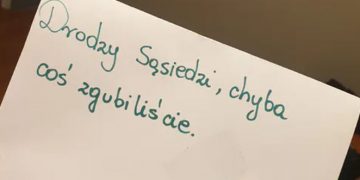 Drodzy Sąsiedzi, chyba
coś zgubiliście.